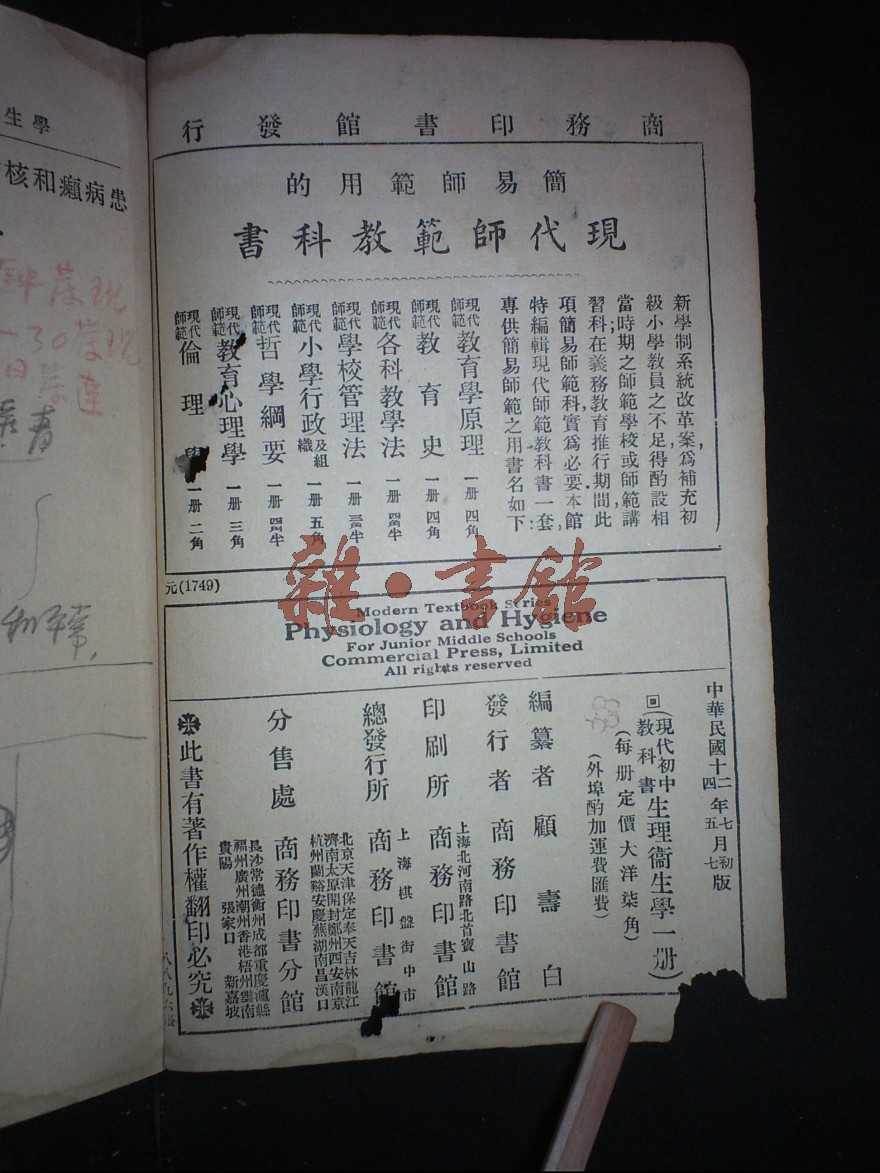 商務印書館發行
簡易師範用的
現代師範教科書
新學制系統改革案,爲補充初
級小學教員之不足得酌設相
當時期之師範學校或師範講
習科;在義務教育推行期間此
項簡易師範科,實爲必要.本館
特編輯現代師範教科書一套,
專供簡易師範之用書名如下:
現代師範 教育學原理 一册 四角
現代師範 教育史 一册 四角
現代師範 各科教學法 一册 四角半
現代師範 學校管理法 一册
現代師範 小學行政及組織 一册 五角
現代師範 哲學綱要 一册 四角半
現代師範 教育心理學 一册 三角
現代師範 倫理學 一册 二角
元(1749)
雜·書館
Modern Textbook Series
Physiology and Hygiene
For Junior Middle Schools
Commercial Press, Limited
All rights reserved
中華民國十二年七月初版
十四年五月七版
(現代初中教科書 生理衞生學一册)
(每册定價大洋柒角)
(外埠酌加運費匯費)
編纂者 顧壽白
發行者 商務印書館
印刷所 上海北河南路北首寶山路 商務印書館
總發行所 上海棋盤街中市 商務印書館
分售處 商務印書分館
北京天津保定奉天吉林龍江
濟南太原開封鄭州西安南京
杭州蘭谿安慶蕪湖南昌漢口
長沙常德衡州成都重慶瀘縣
福州廣州潮州香港梧州雲南
貴陽 張家口 新嘉坡
此書有著作權翻印必究
八八九六張
學生
核和癩病患